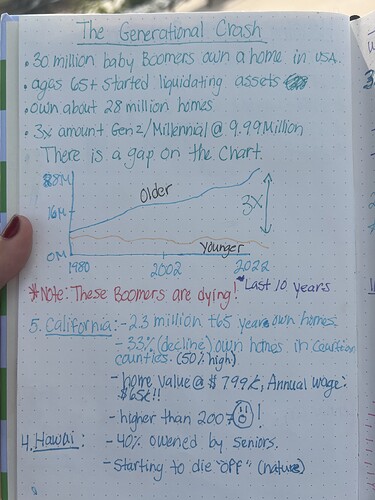 The Generational Crash
• 30 million baby Boomers own a home in USA.
• ages 65+ started liquidating assets
• own about 28 million homes
• 3x amount Gen z/Millennial @ 9.99 Million
There is a gap on the Chart.
28M
Older
16M
3X
Younger
0M
1980 2002 2022
*Note: These Boomers are dying! *Last 10 years
5. California: - 2.3 million +65 years own homes.
- 33% (decline) own homes in
counties. (50% high)
- home value @ $799k, Annual wage:
$65k!!
- higher than 2007 !
4. Hawai: - 40% owened by seniors.
- Starting to die "off" (nature)